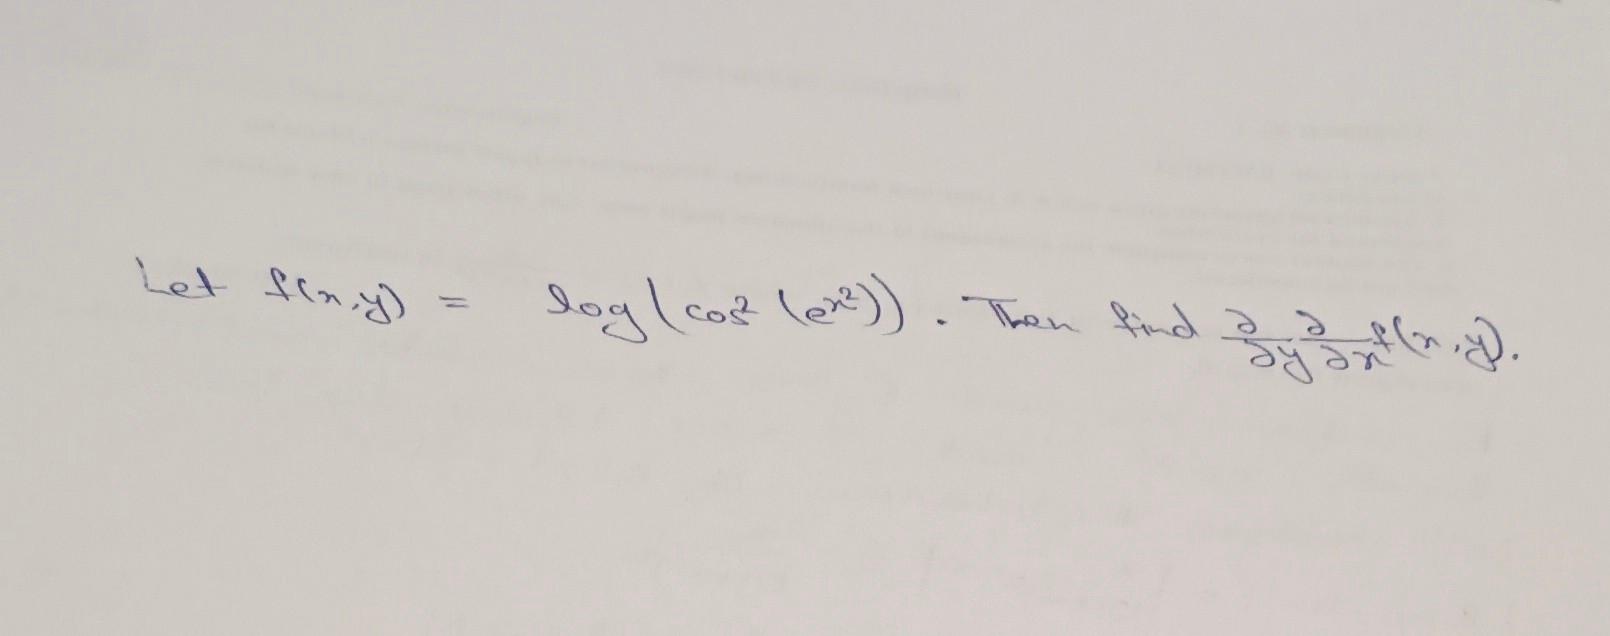 Let f(x,y) = log(cos²(e^{x²})). Then find ∂/∂y ∂/∂x f(x,y).